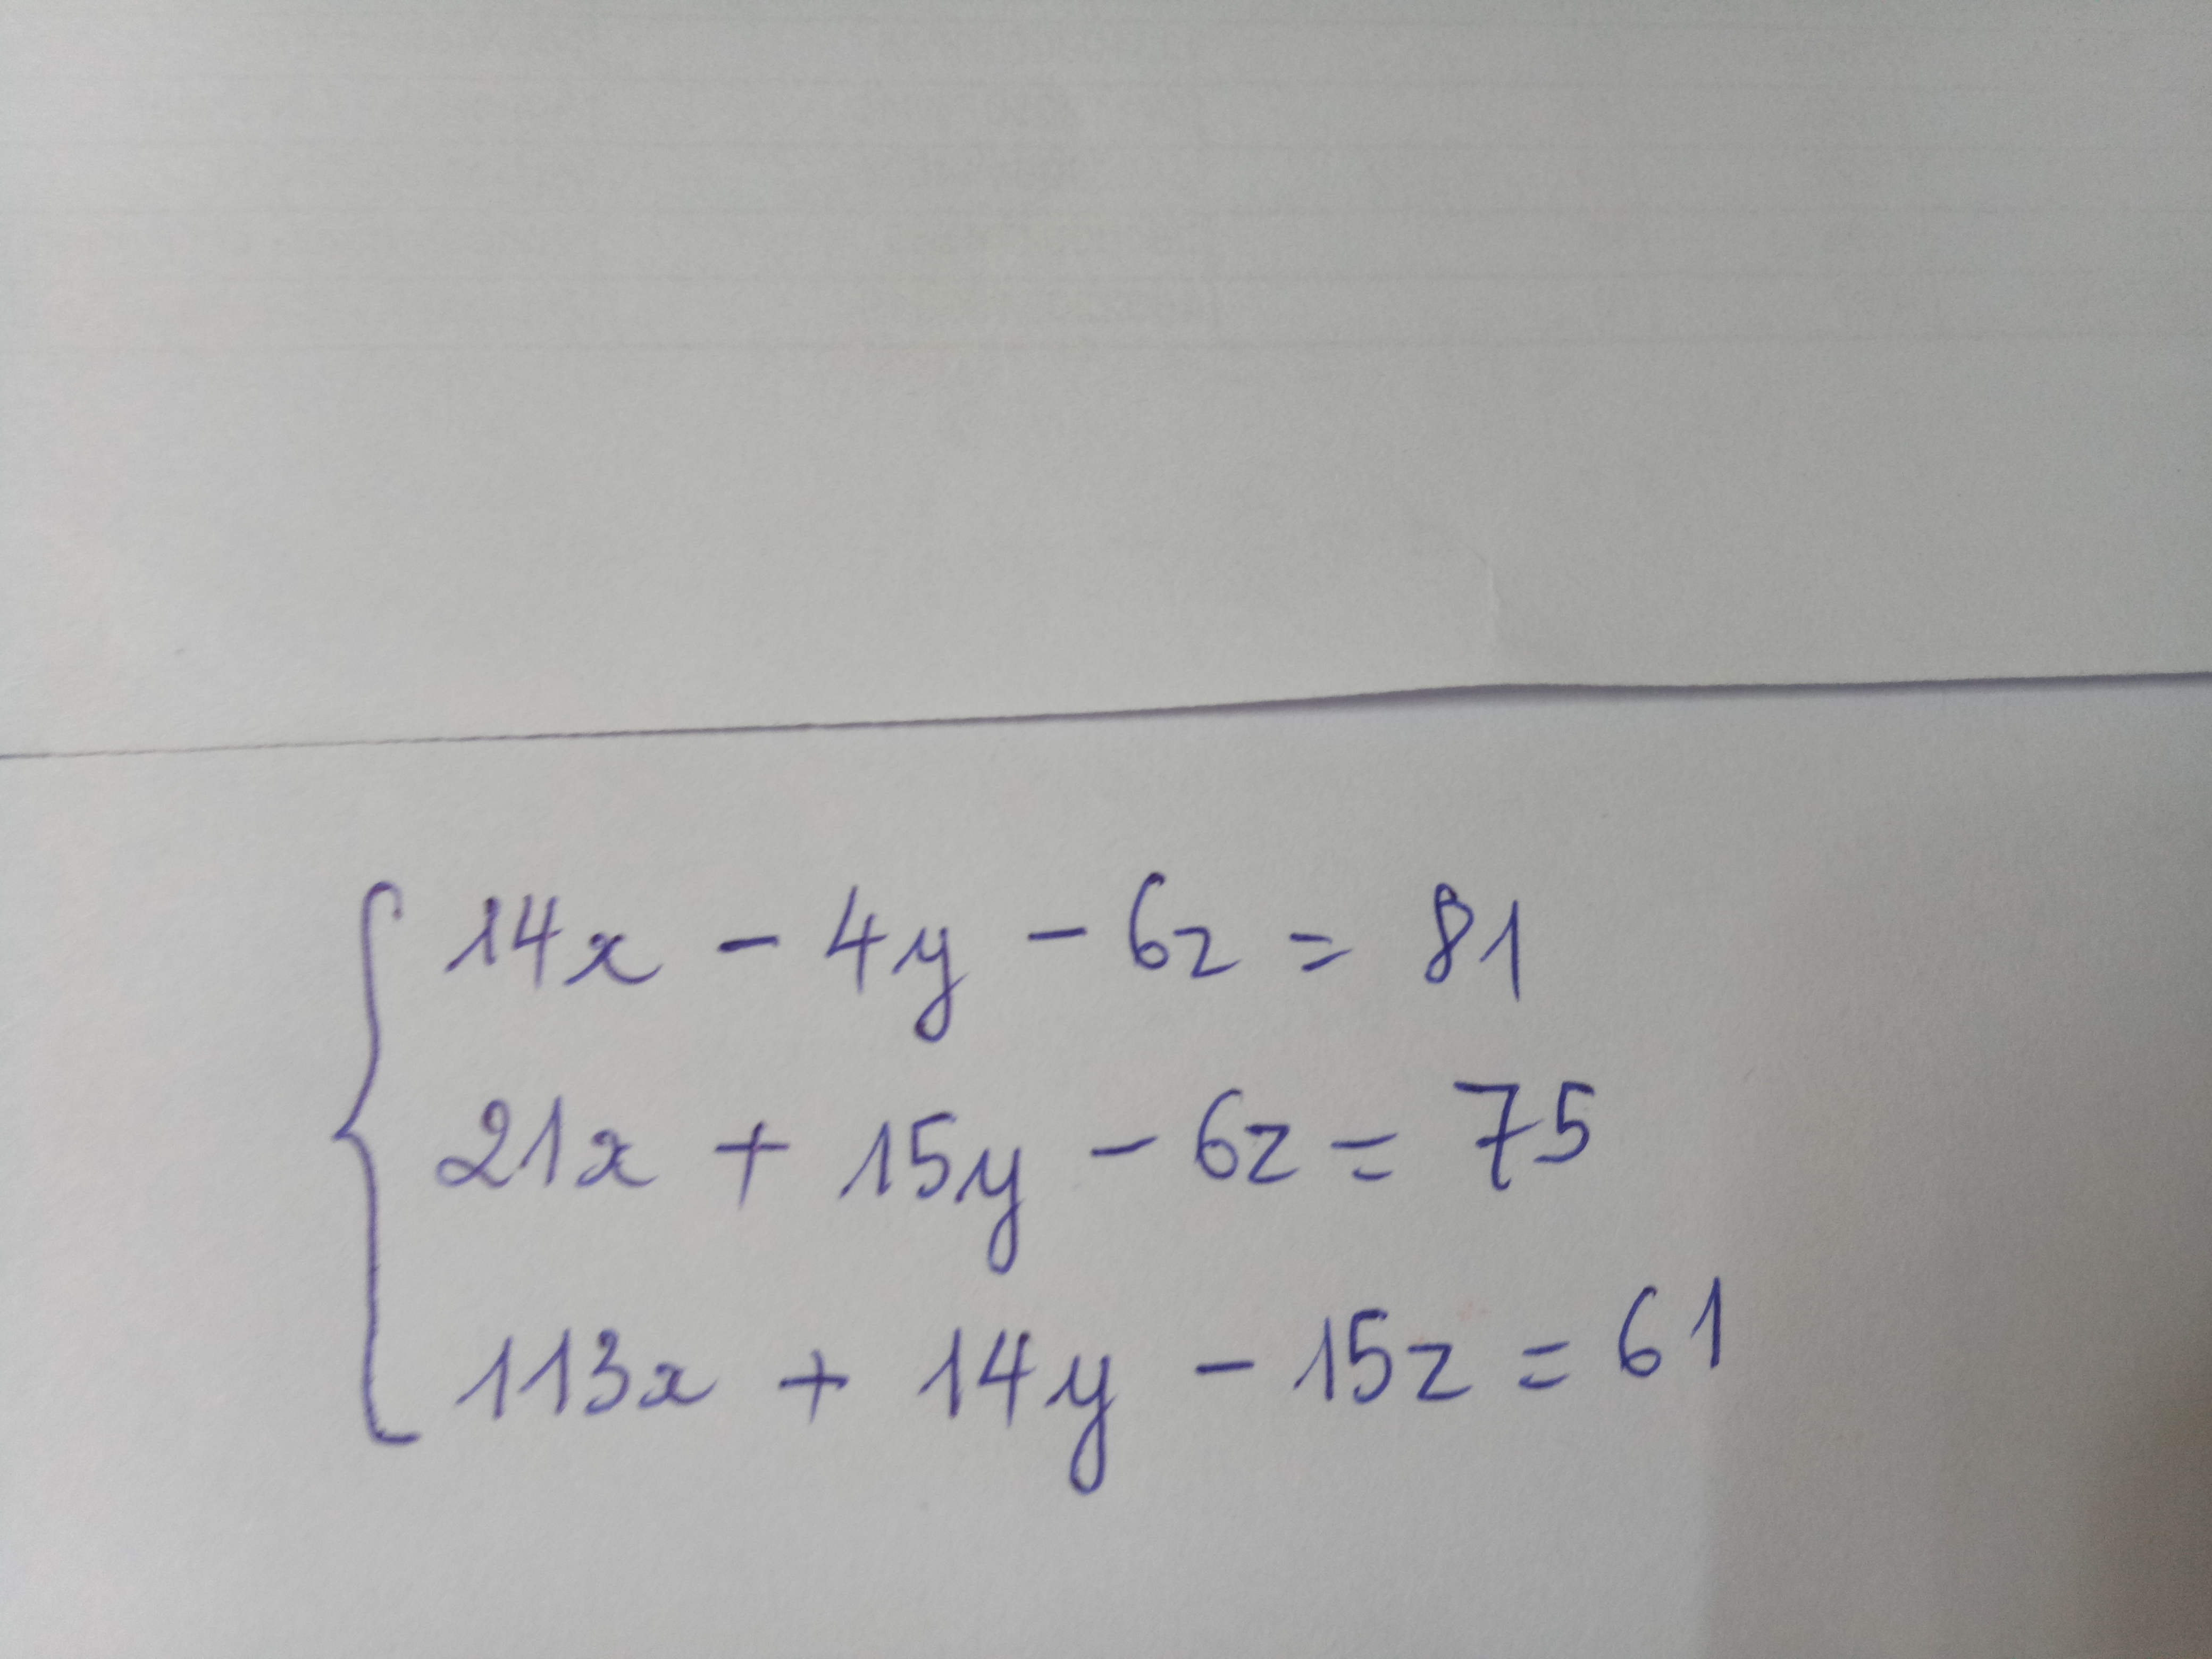 14x - 4y - 6z = 81
21x + 15y - 6z = 75
113x + 14y - 15z = 61